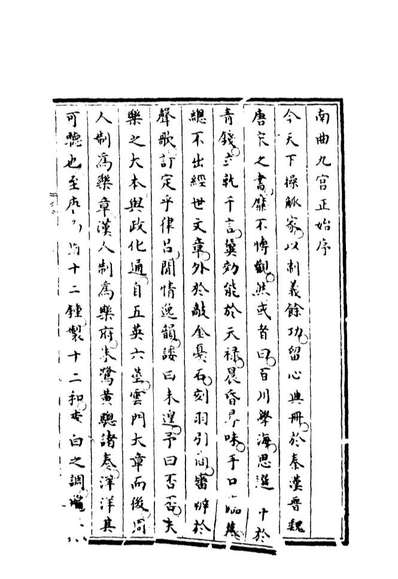 南曲九宮正始序
今天下操觚家以制義餘功留心典冊於秦漢晉魏
唐宋之書靡不博觀然或者曰百川學海思選十於
青錢執千言冀効能於天祿晨昏尋味手口
總不出經世文章外於敲金戛石刻羽引商審辨於
聲歌訂定乎律呂閒情逸韻諉曰未遑予曰否否夫
樂之大本與政化通自五英六莖雲門大章而後周
人制為樂章漢人制為樂府朱鷺黃驄諸奏洋洋其
可聽也至唐均十二鐘製十二和白之調